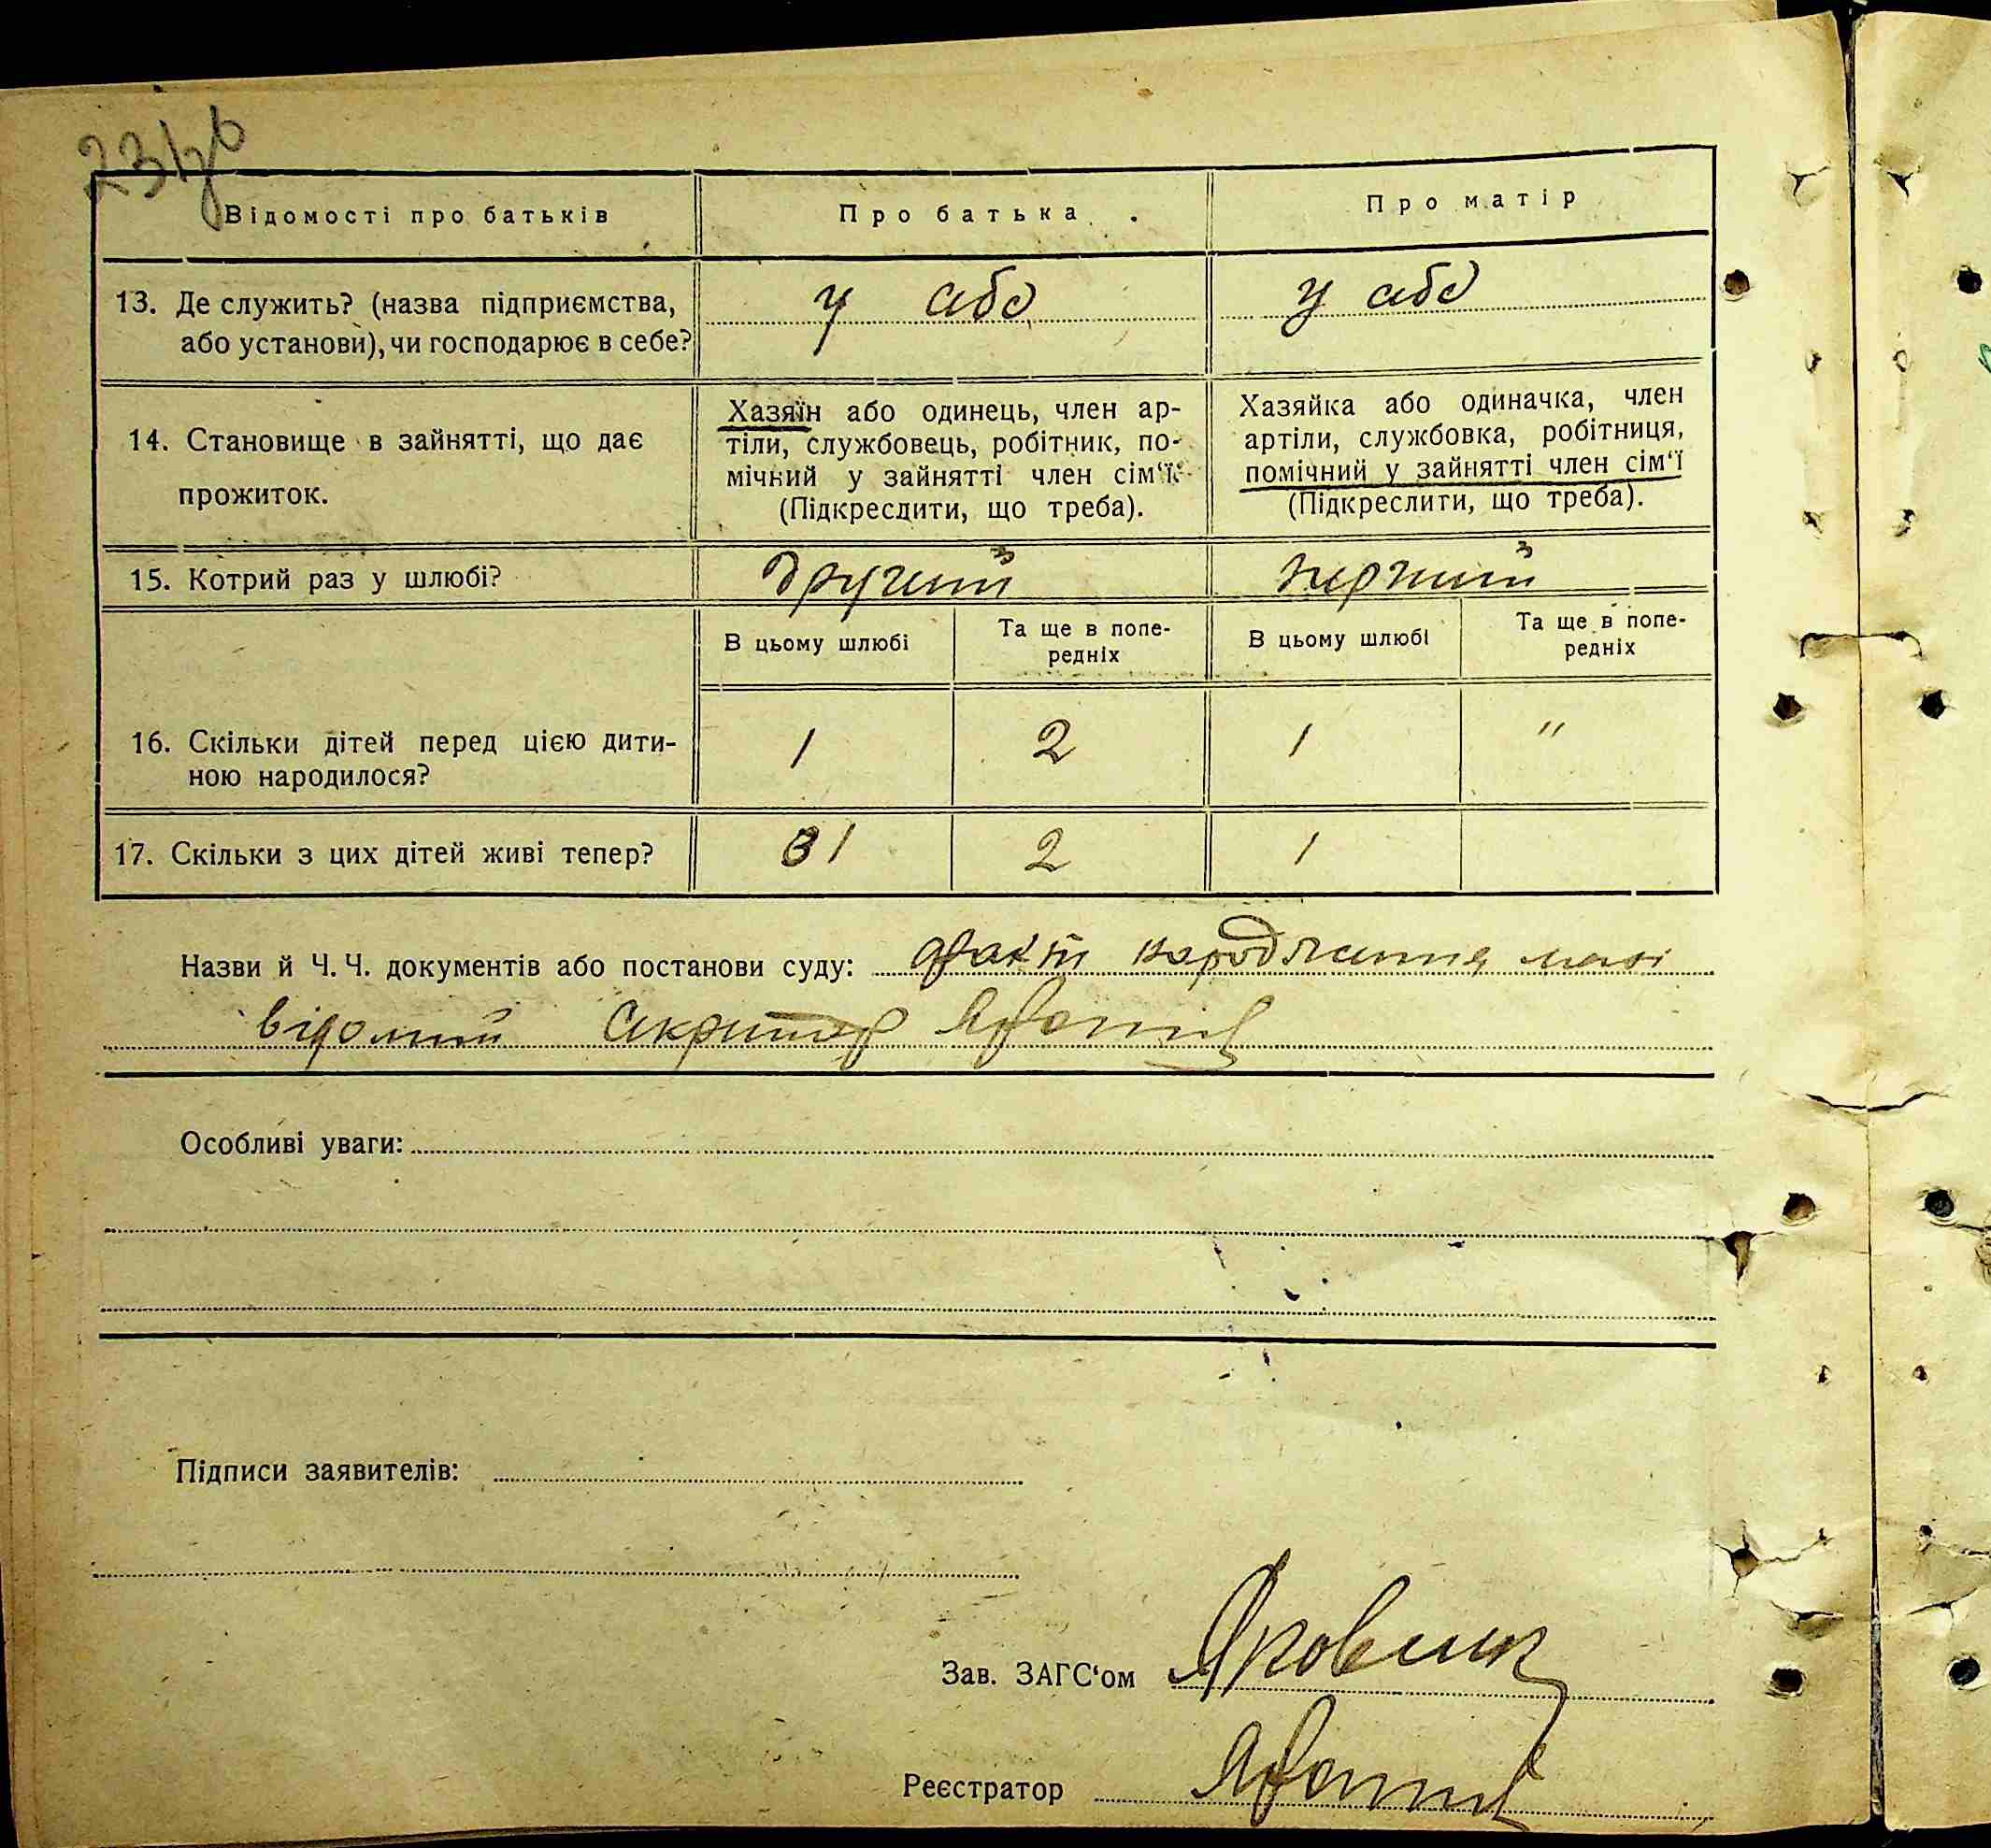 Відомості про батьків
Про батька
Про матір
13. Де служить? (назва підприємства,
або установи), чи господарює в себе?
у або
у або
14. Становище в зайнятті, що дає
прожиток.
Хазяїн або одинець, член ар-
тіли, службовець, робітник, по-
мічний у зайнятті член сім‘ї
(Підкреслити, що треба).
Хазяйка або одиначка, член
артіли, службовка, робітниця,
помічний у зайнятті член сім‘ї
(Підкреслити, що треба).
15. Котрий раз у шлюбі?
другий
перший
В цьому шлюбі
Та ще в попе-
редніх
В цьому шлюбі
Та ще в попе-
редніх
16. Скільки дітей перед цією дити-
ною народилося?
1
2
1
"
17. Скільки з цих дітей живі тепер?
1
2
1
Назви й Ч. Ч. документів або постанови суду: факт народження мені
відомий Секретар
Особливі уваги:
Підписи заявителів:
Зав. ЗАГС‘ом
Реєстратор